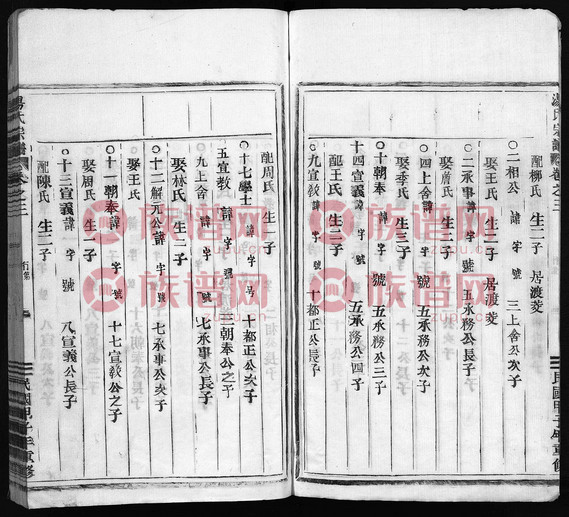 湯氏宗譜 卷之三
配柳氏 生二子 居渡菱
○二相公 諱 字 號 三上舍公次子
娶王氏 生三子 居渡菱
○二承事 諱 字 號 五承務公長子
娶詹氏 生一子
○四上舍諱 字 號 五承務公次子
娶季氏 生一子
○十朝奉 諱 字 號 五承務公三子
十四宣義諱 字 號 五承務公四子
配王氏 生一子
○九宣教諱 字 號 十都正公長子
民國甲子年重修
配周氏 生二子
○十七學士諱 字 號 十都正公次子
五宣教 諱 字 號 三朝奉公之子
○九上舍 諱 字 號 七承事公長子
娶林氏 生一子
○十二解元公諱 字 號 七承事公次子
娶王氏 生一子
○十一朝奉諱 字 號 十七宣教公之子
娶胡氏 生一子
○十三宣義諱 字 號 八宣義公長子
配陳氏 生二子
湯氏宗譜 卷之三 行第
民國甲子年重修
族谱网
族谱网
族谱网
族谱网